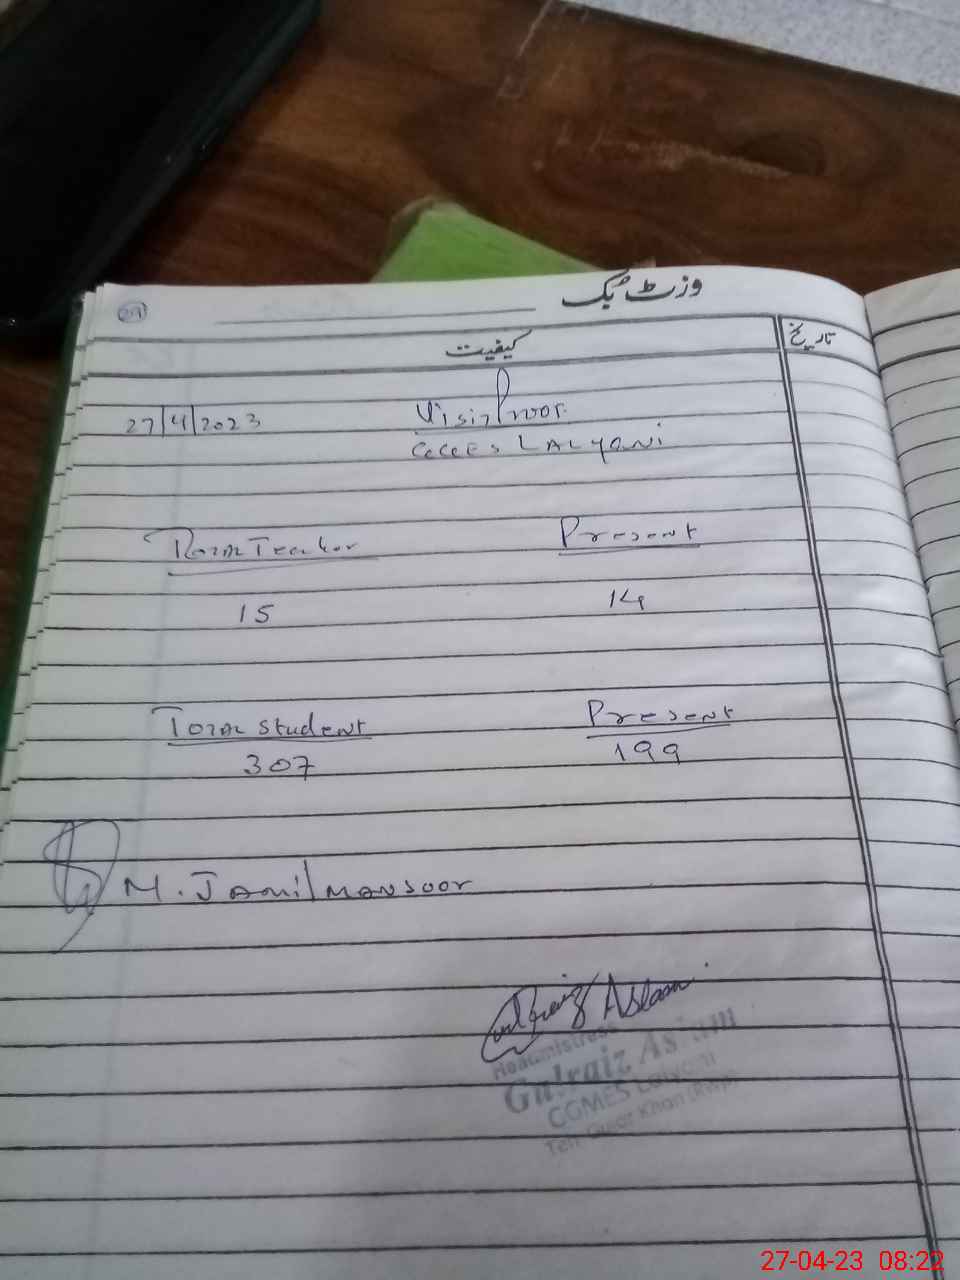 29
وزٹ بک
کیفیت
تاریخ
27/4/2023
Visit Proof
Lalyani
Total Teacher Present
15 14
Total Student Present
307 199
M. Jamil Mansoor
Gulraiz Aslam
Headmistress
Gulraiz Aslam
CGMES Lalyani
Teh: Gujar Khan (Rwp)
27-04-23 08:22